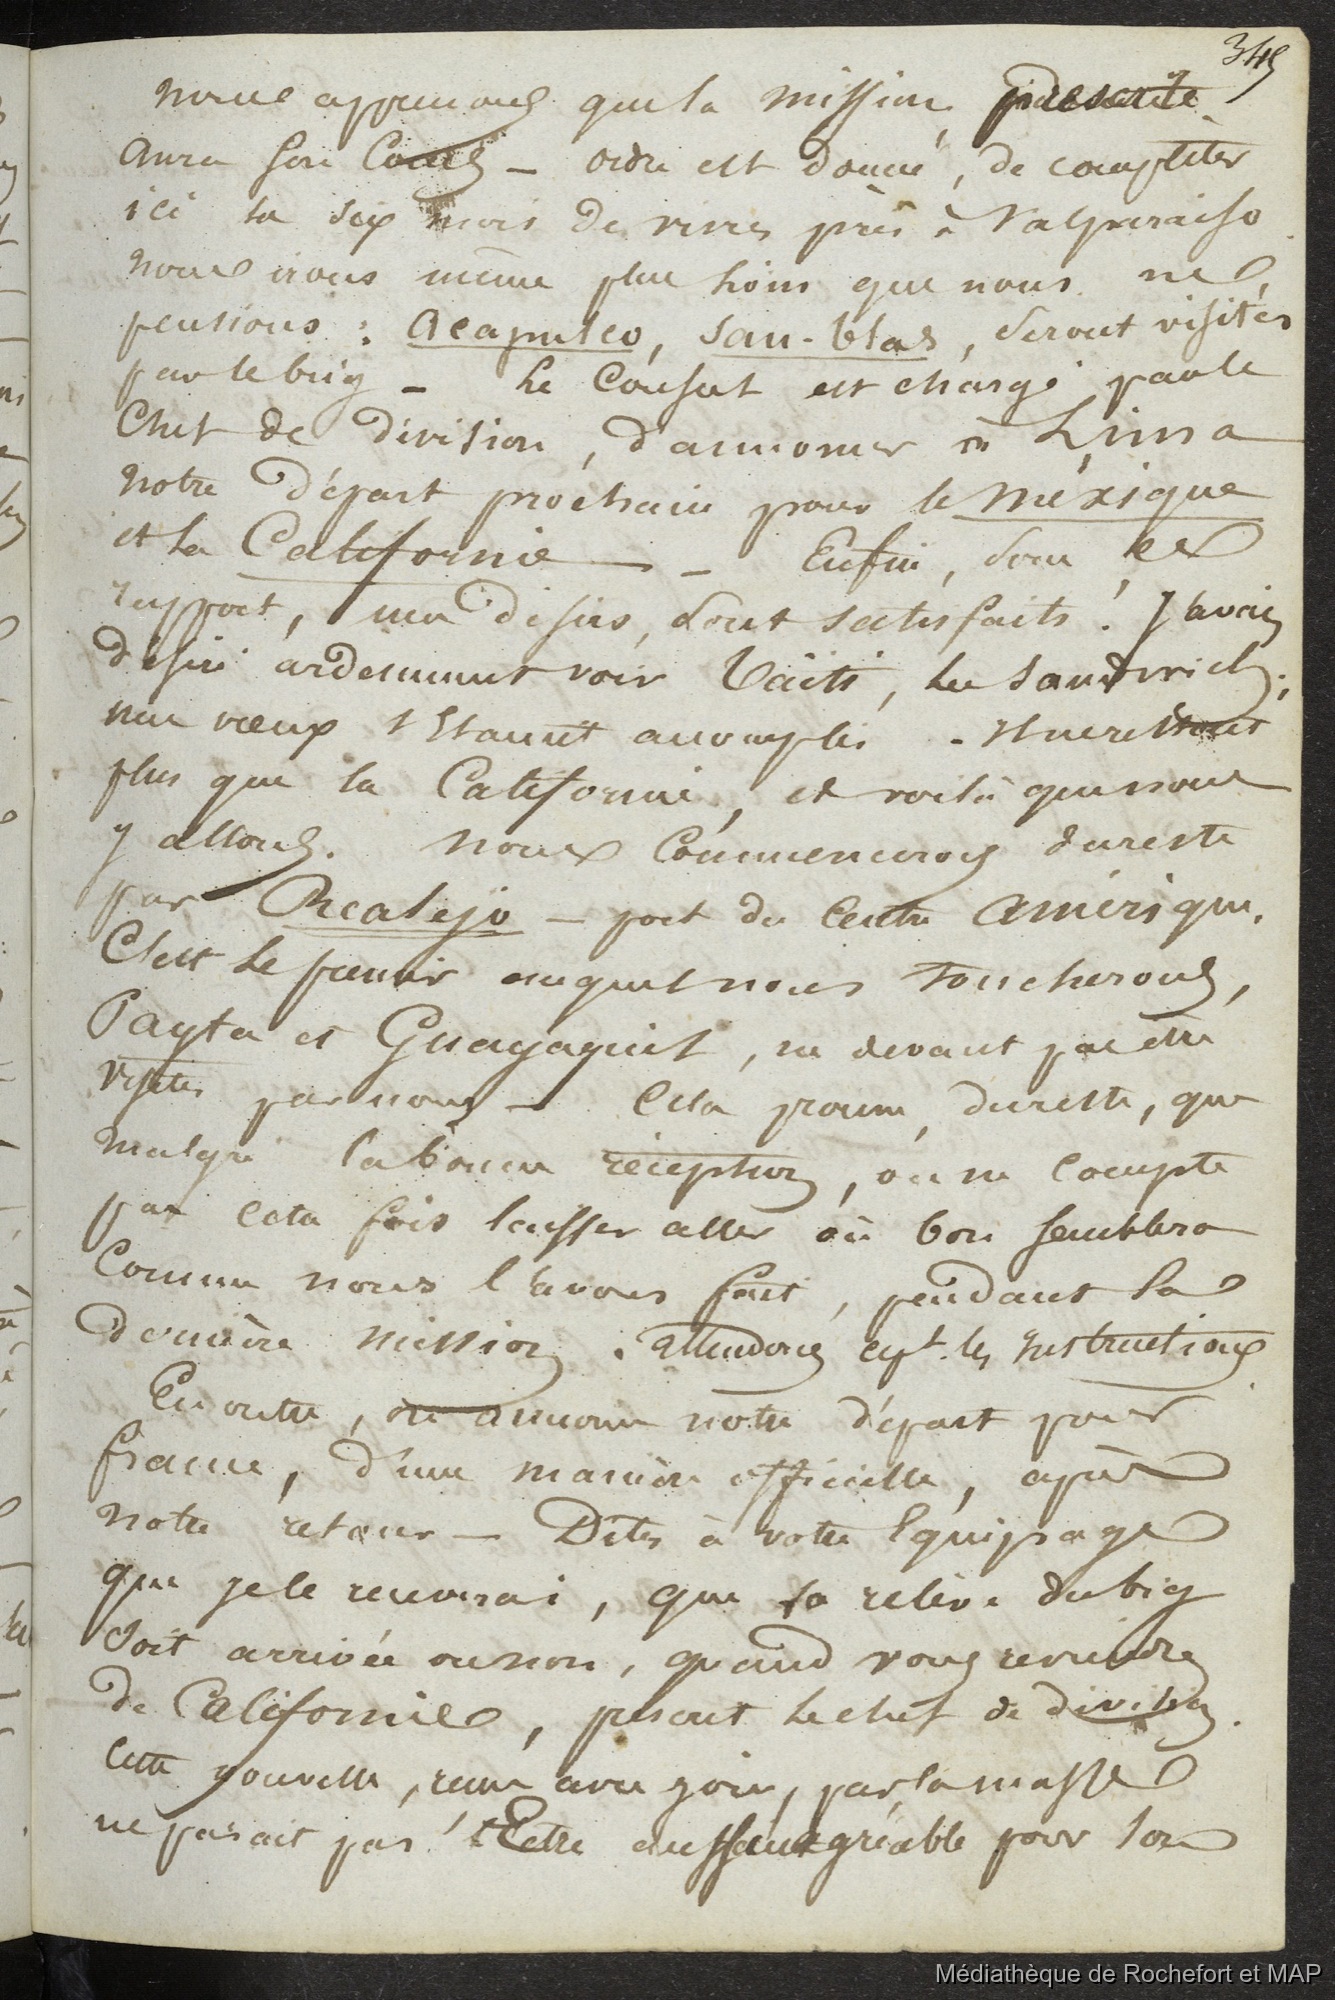 345
nous apprenons que la mission, présente
aura son cours — ordre est donné, de compléter
ici la six mois de vivres pris à Valparaiso
nous irons même plus loin que nous ne
pensions : Acapulco, San-blas, seront visités
par le brig — Le Consul est chargé par le
Chef de division, d'annoncer à Lima
notre départ prochain pour le méxique
et la Californie — Enfin, sous ce
rapport, mes désirs, sont satisfaits ! J'avais
désiré ardemment voir Taïti, les Sandwich ;
mes vœux s'étaient accomplis . Il ne restait
plus que la Californie, et voilà que nous
y allons. nous commencerons du reste
par Realejo — port du Centre Amérique.
C'est le premier auquel nous toucherons,
Payta et Guayaquil, ne devant pas être
visités par nous — Cela prouve, du reste, que
malgré la bonne réception, on ne compte
pas cette fois laisser aller où bon semblera
Comme nous l'avons fait, pendant la
dernière mission . attendons cept. les instructions
En outre, on annonce notre départ pour
france, d'une manière officielle, après
notre retour — Dites à votre Equipage
que je le renverrai, que la relève du brig
soit arrivée ou non, quand vous reviendrez
de Californie, disait le chef de division.
Cette nouvelle, reçue avec joie, par la masse
ne parait pas être aussi agréable pour les
Médiathèque de Rochefort et MAP